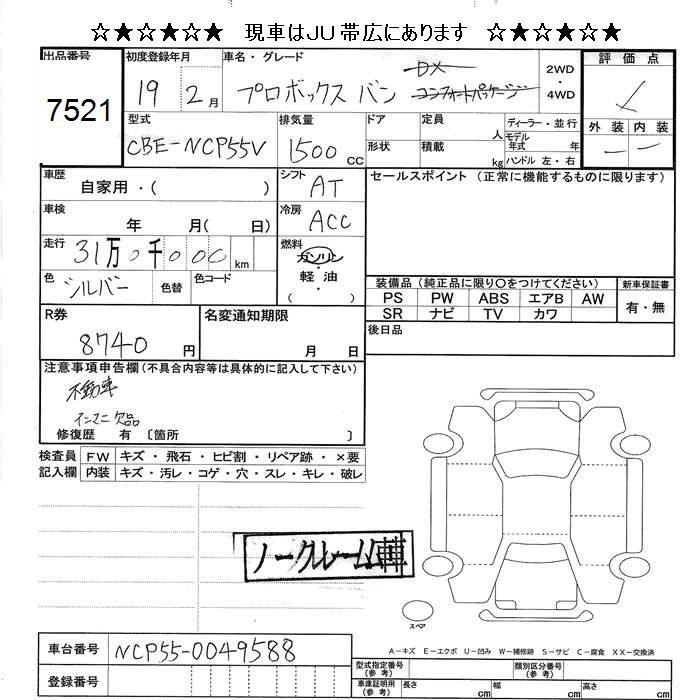 ☆★☆★☆★ 現車はJU帯広にあります ☆★☆★☆★
出品番号
7521
初度登録年月
19 2月
車名・グレード
プロボックス バン
DX
コンフォートパッケージ
2WD
・
4WD
評価点
外装 内装
型式
CBE-NCP55V
排気量
1500 CC
ドア
形状
定員 人
積載 kg
ディーラー・並行
モデル年式 年
ハンドル 左・右
車歴
自家用・( )
シフト
AT
セールスポイント (正常に機能するものに限ります)
車検
年 月( 日)
冷房
ACC
走行
31万0千000km
燃料
ガソリン
・
軽油
( )
色
シルバー
色替
色コード
装備品 (純正品に限り〇をつけてください)
新車保証書
PS PW ABS エアB AW
有・無
SR ナビ TV カワ
R券
8740 円
名変通知期限
月 日
後日品
注意事項申告欄(不具合内容等は具体的に記入して下さい)
不動車
インマニ欠品
修復歴 有 〔箇所 〕
検査員
記入欄
FW キズ・飛石・ヒビ割・リペア跡・×要
内装 キズ・汚レ・コゲ・穴・スレ・キレ・破レ
ノークレーム車
スペア
A-キズ E-エクボ U-凹み W-補修跡 S-サビ C-腐食 XX-交換済
車台番号
NCP55-0049588
登録番号
型式指定番号
(参考)
類別区分番号
(参考)
車庫証明用
(参考)
長さ cm
幅 cm
高さ cm